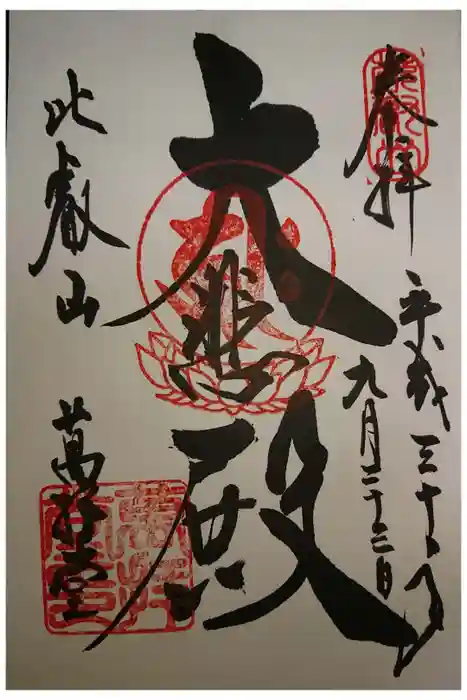 奉拝
平成三十年
九月二十二日
大悲殿
比叡山
萬拝堂